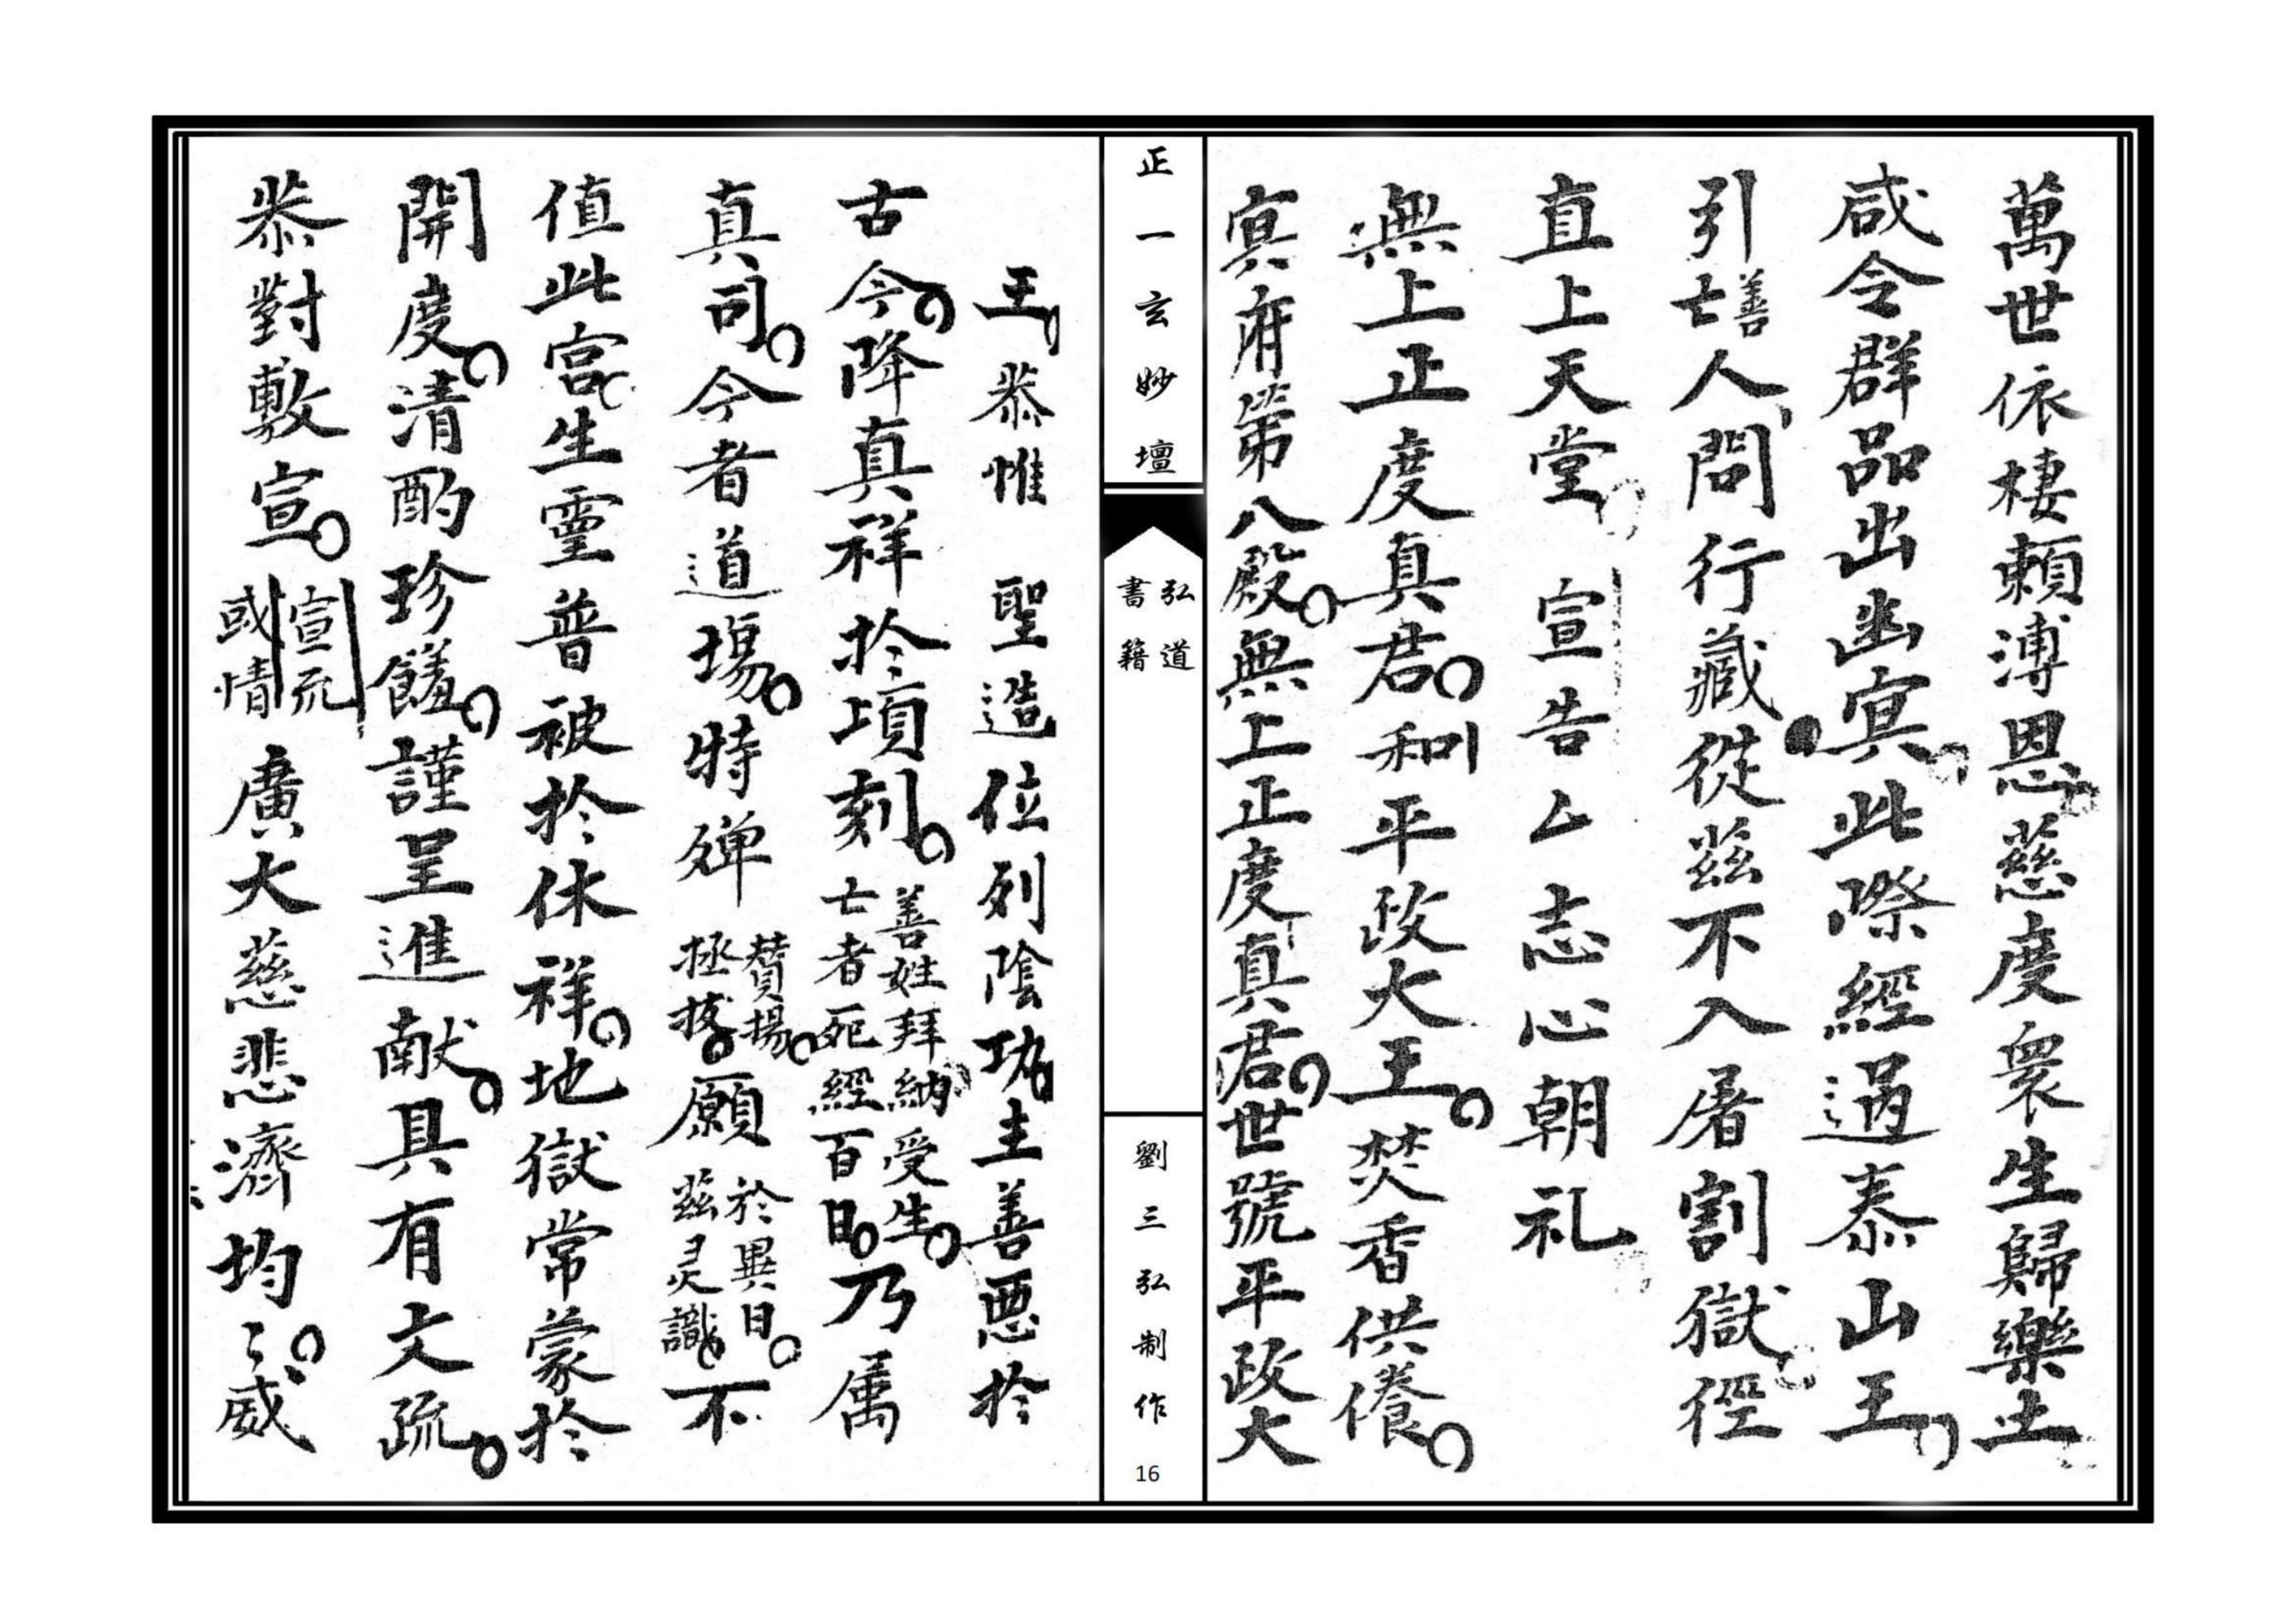 萬世依棲賴溥恩慈度衆生歸樂土
咸令群品出幽冥此際經過泰山王
引善亡人問行藏從兹不入屠割獄徑
直上天堂 宣告厶志心朝礼
無上正度真君和平政大王焚香供養
冥府第八殿無上正度真君世號平政大
正一玄妙壇
弘道
書籍
劉三弘制作
16
王恭惟 聖造位列陰功主善惡於
古今降真祥於頃刻善姓拜納受生亡者死經百日乃属
真司今者道場特殫賛揚拯拔願於異日兹灵識不
值此宫生靈普被於休祥地獄常蒙於
開度清酌珍饈謹呈進献具有文疏
恭對敷宣宣疏或情廣大慈悲濟均〻威